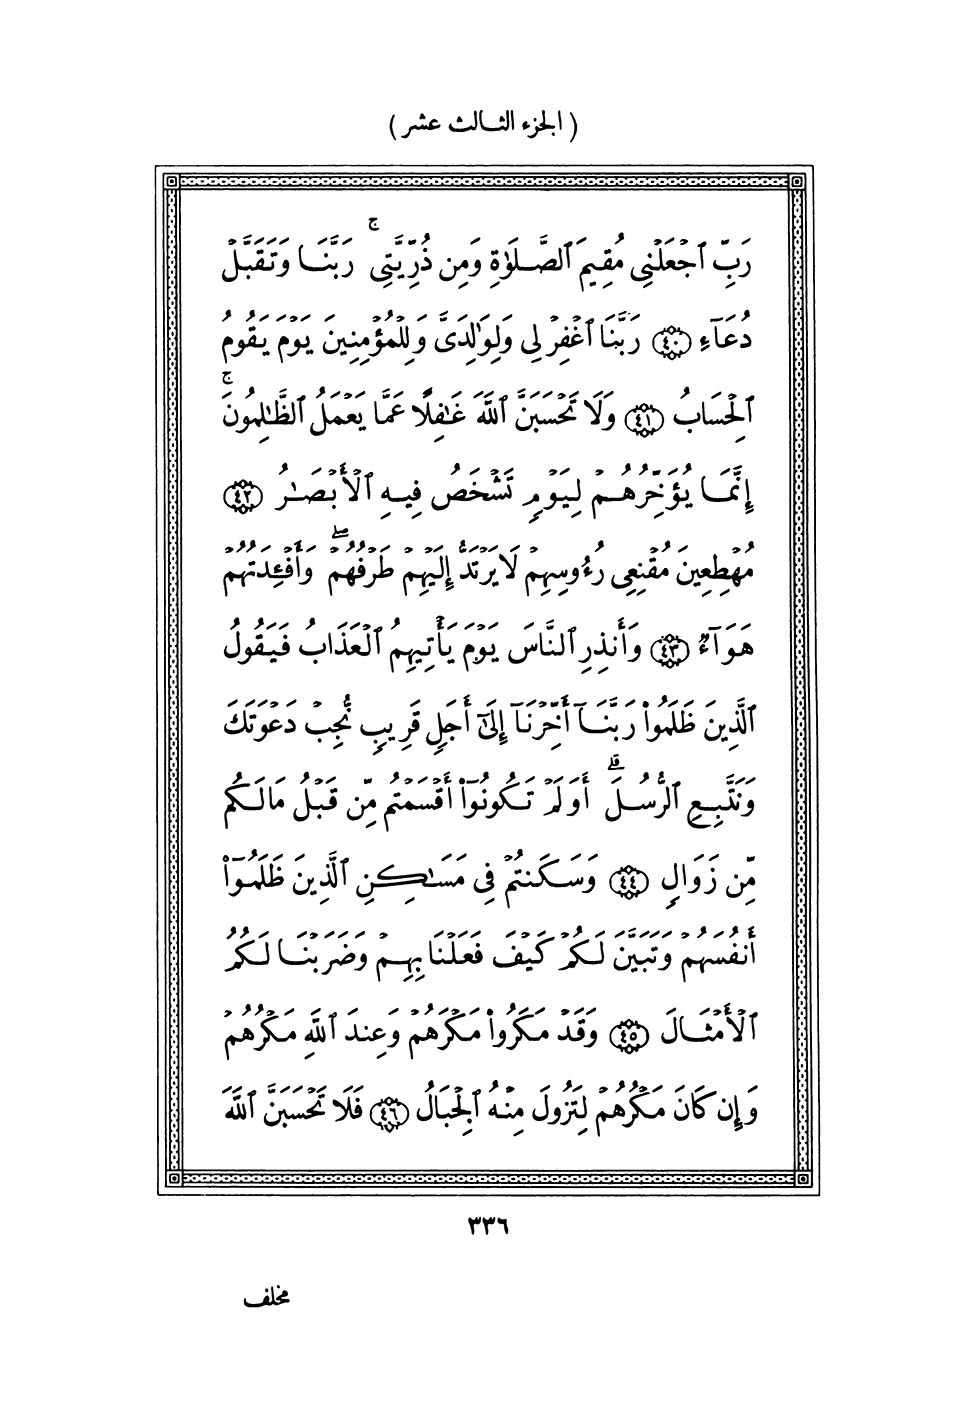 ( الجزء الثالث عشر )
رَبِّ ٱجْعَلْنِى مُقِيمَ ٱلصَّلَوٰةِ وَمِن ذُرِّيَّتِى ۚ رَبَّنَا وَتَقَبَّلْ
دُعَآءِ ﴿٤٠﴾ رَبَّنَا ٱغْفِرْ لِى وَلِوَٰلِدَىَّ وَلِلْمُؤْمِنِينَ يَوْمَ يَقُومُ
ٱلْحِسَابُ ﴿٤١﴾ وَلَا تَحْسَبَنَّ ٱللَّهَ غَٰفِلًا عَمَّا يَعْمَلُ ٱلظَّٰلِمُونَ ۚ
إِنَّمَا يُؤَخِّرُهُمْ لِيَوْمٍ تَشْخَصُ فِيهِ ٱلْأَبْصَٰرُ ﴿٤٢﴾
مُهْطِعِينَ مُقْنِعِى رُءُوسِهِمْ لَا يَرْتَدُّ إِلَيْهِمْ طَرْفُهُمْ ۖ وَأَفْـِٔدَتُهُمْ
هَوَآءٌ ﴿٤٣﴾ وَأَنذِرِ ٱلنَّاسَ يَوْمَ يَأْتِيهِمُ ٱلْعَذَابُ فَيَقُولُ
ٱلَّذِينَ ظَلَمُوا۟ رَبَّنَآ أَخِّرْنَآ إِلَىٰٓ أَجَلٍ قَرِيبٍ نُّجِبْ دَعْوَتَكَ
وَنَتَّبِعِ ٱلرُّسُلَ ۗ أَوَلَمْ تَكُونُوٓا۟ أَقْسَمْتُم مِّن قَبْلُ مَا لَكُم
مِّن زَوَالٍ ﴿٤٤﴾ وَسَكَنتُمْ فِى مَسَٰكِنِ ٱلَّذِينَ ظَلَمُوٓا۟
أَنفُسَهُمْ وَتَبَيَّنَ لَكُمْ كَيْفَ فَعَلْنَا بِهِمْ وَضَرَبْنَا لَكُمُ
ٱلْأَمْثَالَ ﴿٤٥﴾ وَقَدْ مَكَرُوا۟ مَكْرَهُمْ وَعِندَ ٱللَّهِ مَكْرُهُمْ
وَإِن كَانَ مَكْرُهُمْ لِتَزُولَ مِنْهُ ٱلْجِبَالُ ﴿٤٦﴾ فَلَا تَحْسَبَنَّ ٱللَّهَ
٣٣٦
مخلف